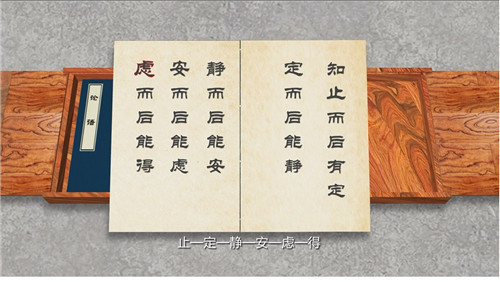 知止而后有定
定而后能静
静而后能安
安而后能虑
虑而后能得
论语
止—定—静—安—虑—得